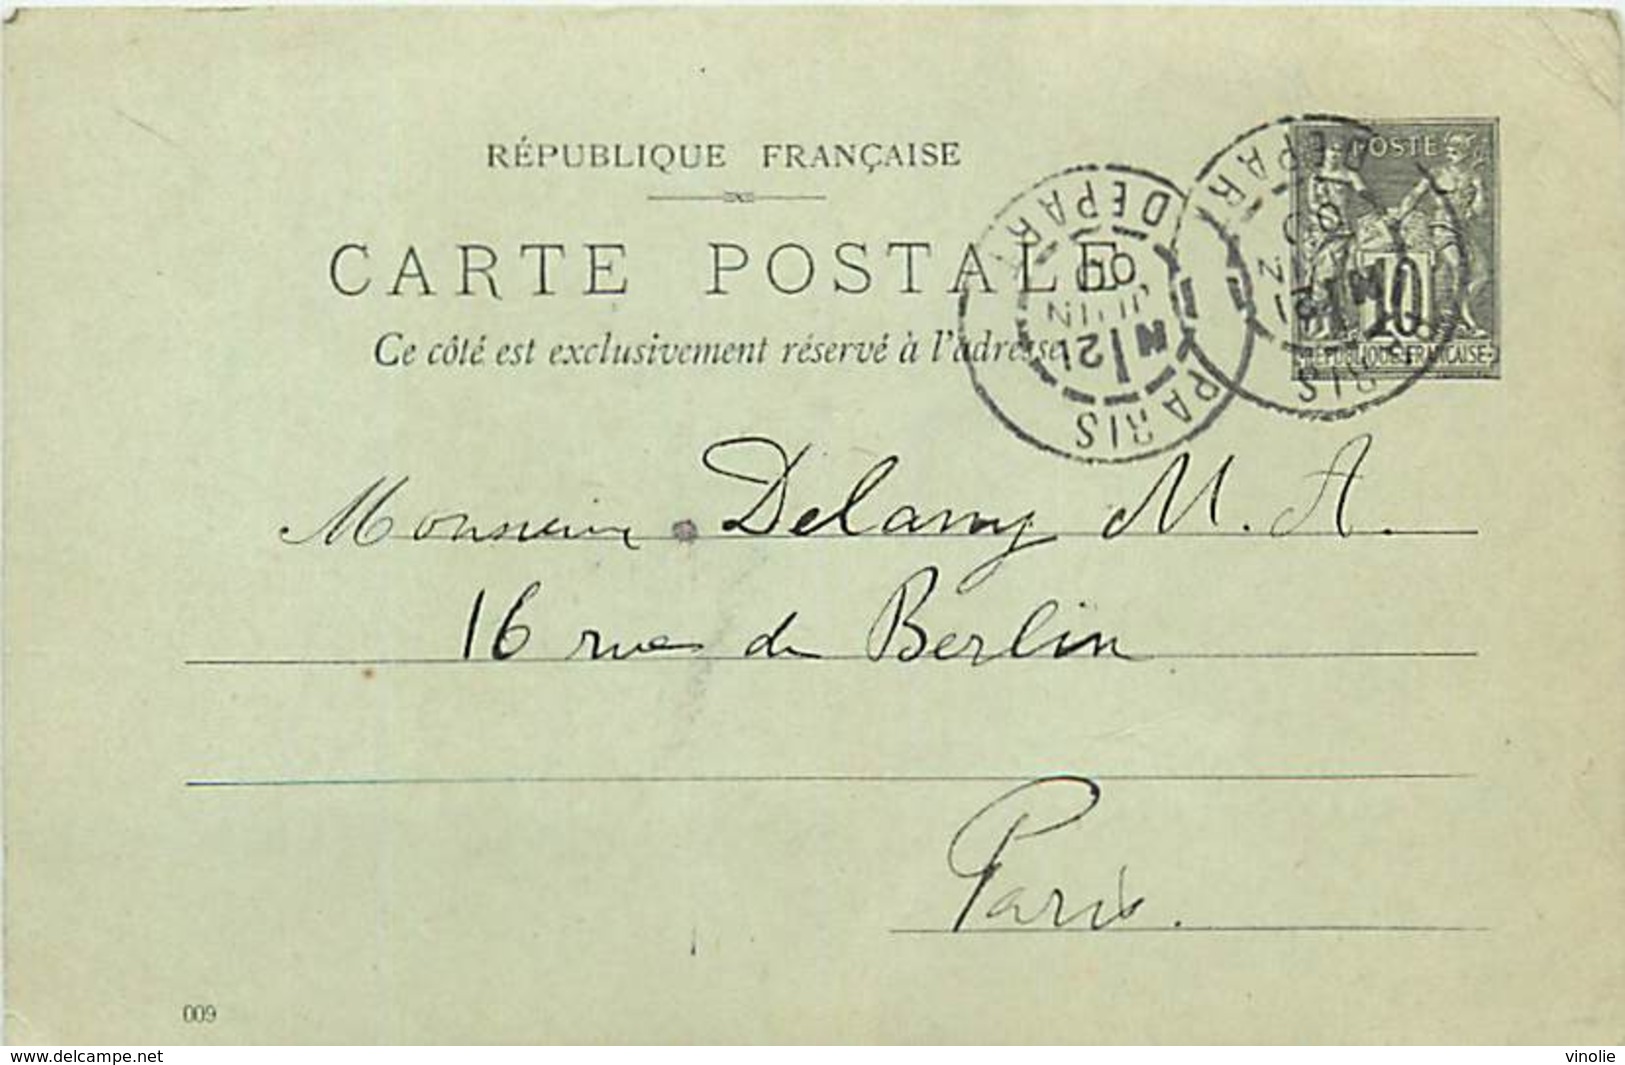 RÉPUBLIQUE FRANÇAISE
CARTE POSTALE
Ce côté est exclusivement réservé à l'adresse.
POSTE
10
RÉPUBLIQUE FRANÇAISE
PARIS
DEPART
21
JUIN
00
PARIS
DEPART
21
00
Monsieur Delamy M. A.
16 rue de Berlin
Paris.
009
www.delcampe.net
vinolie